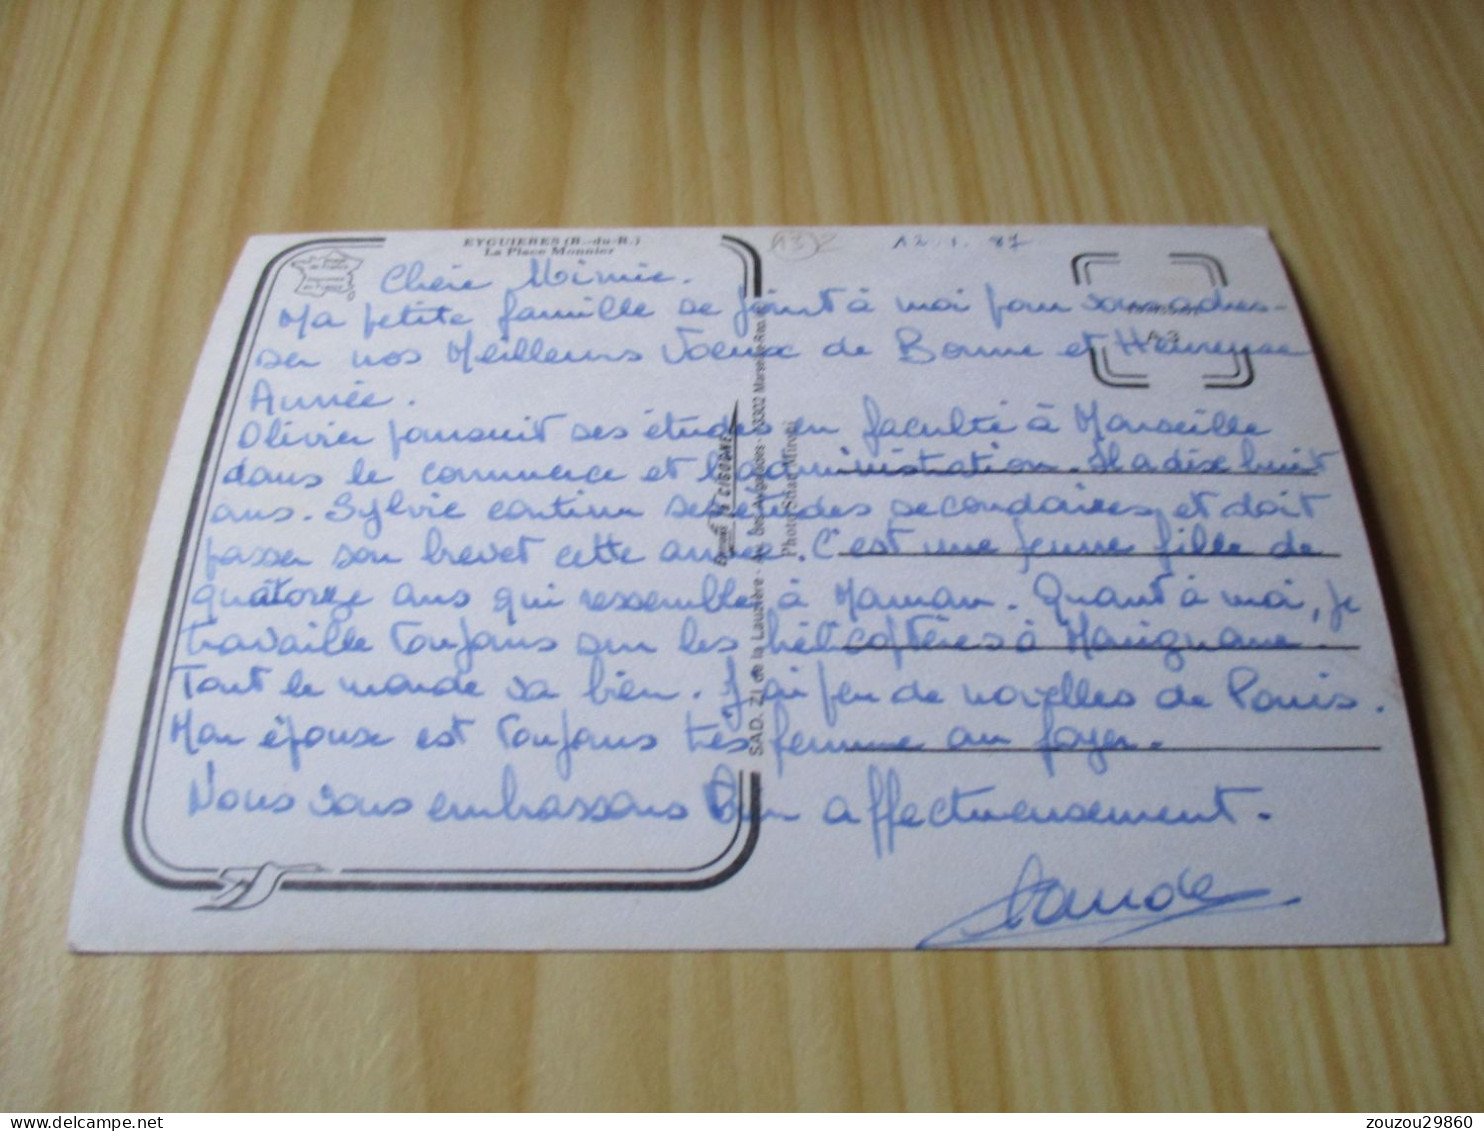 EYGUIERES (B.-du-R.)
La Place Monnier
(13)
12.1.87
Chère Mimie.
Ma petite famille se joint à moi pour vous adres-
ser nos Meilleurs Voeux de Bonne et Heureuse
Année.
Olivier poursuit ses études en faculté à Marseille
dans le commerce et l'administration. Il a dix huit
ans. Sylvie continu ses études secondaires et doit
passer son brevet cette année. C'est une jeune fille de
quatorze ans qui ressemble à Maman. Quant à moi, je
travaille toujours sur les hélicoptères à Marignane.
Tout le monde va bien. J'ai peu de novelles de Paris.
Mon épouse est toujours très femme au foyer.
Nous vous embrassons bien affectueusement.
Claude
LA CIGOGNE
SAD. ZI de la Lauzière - 13302 Marseille
zouzou29860